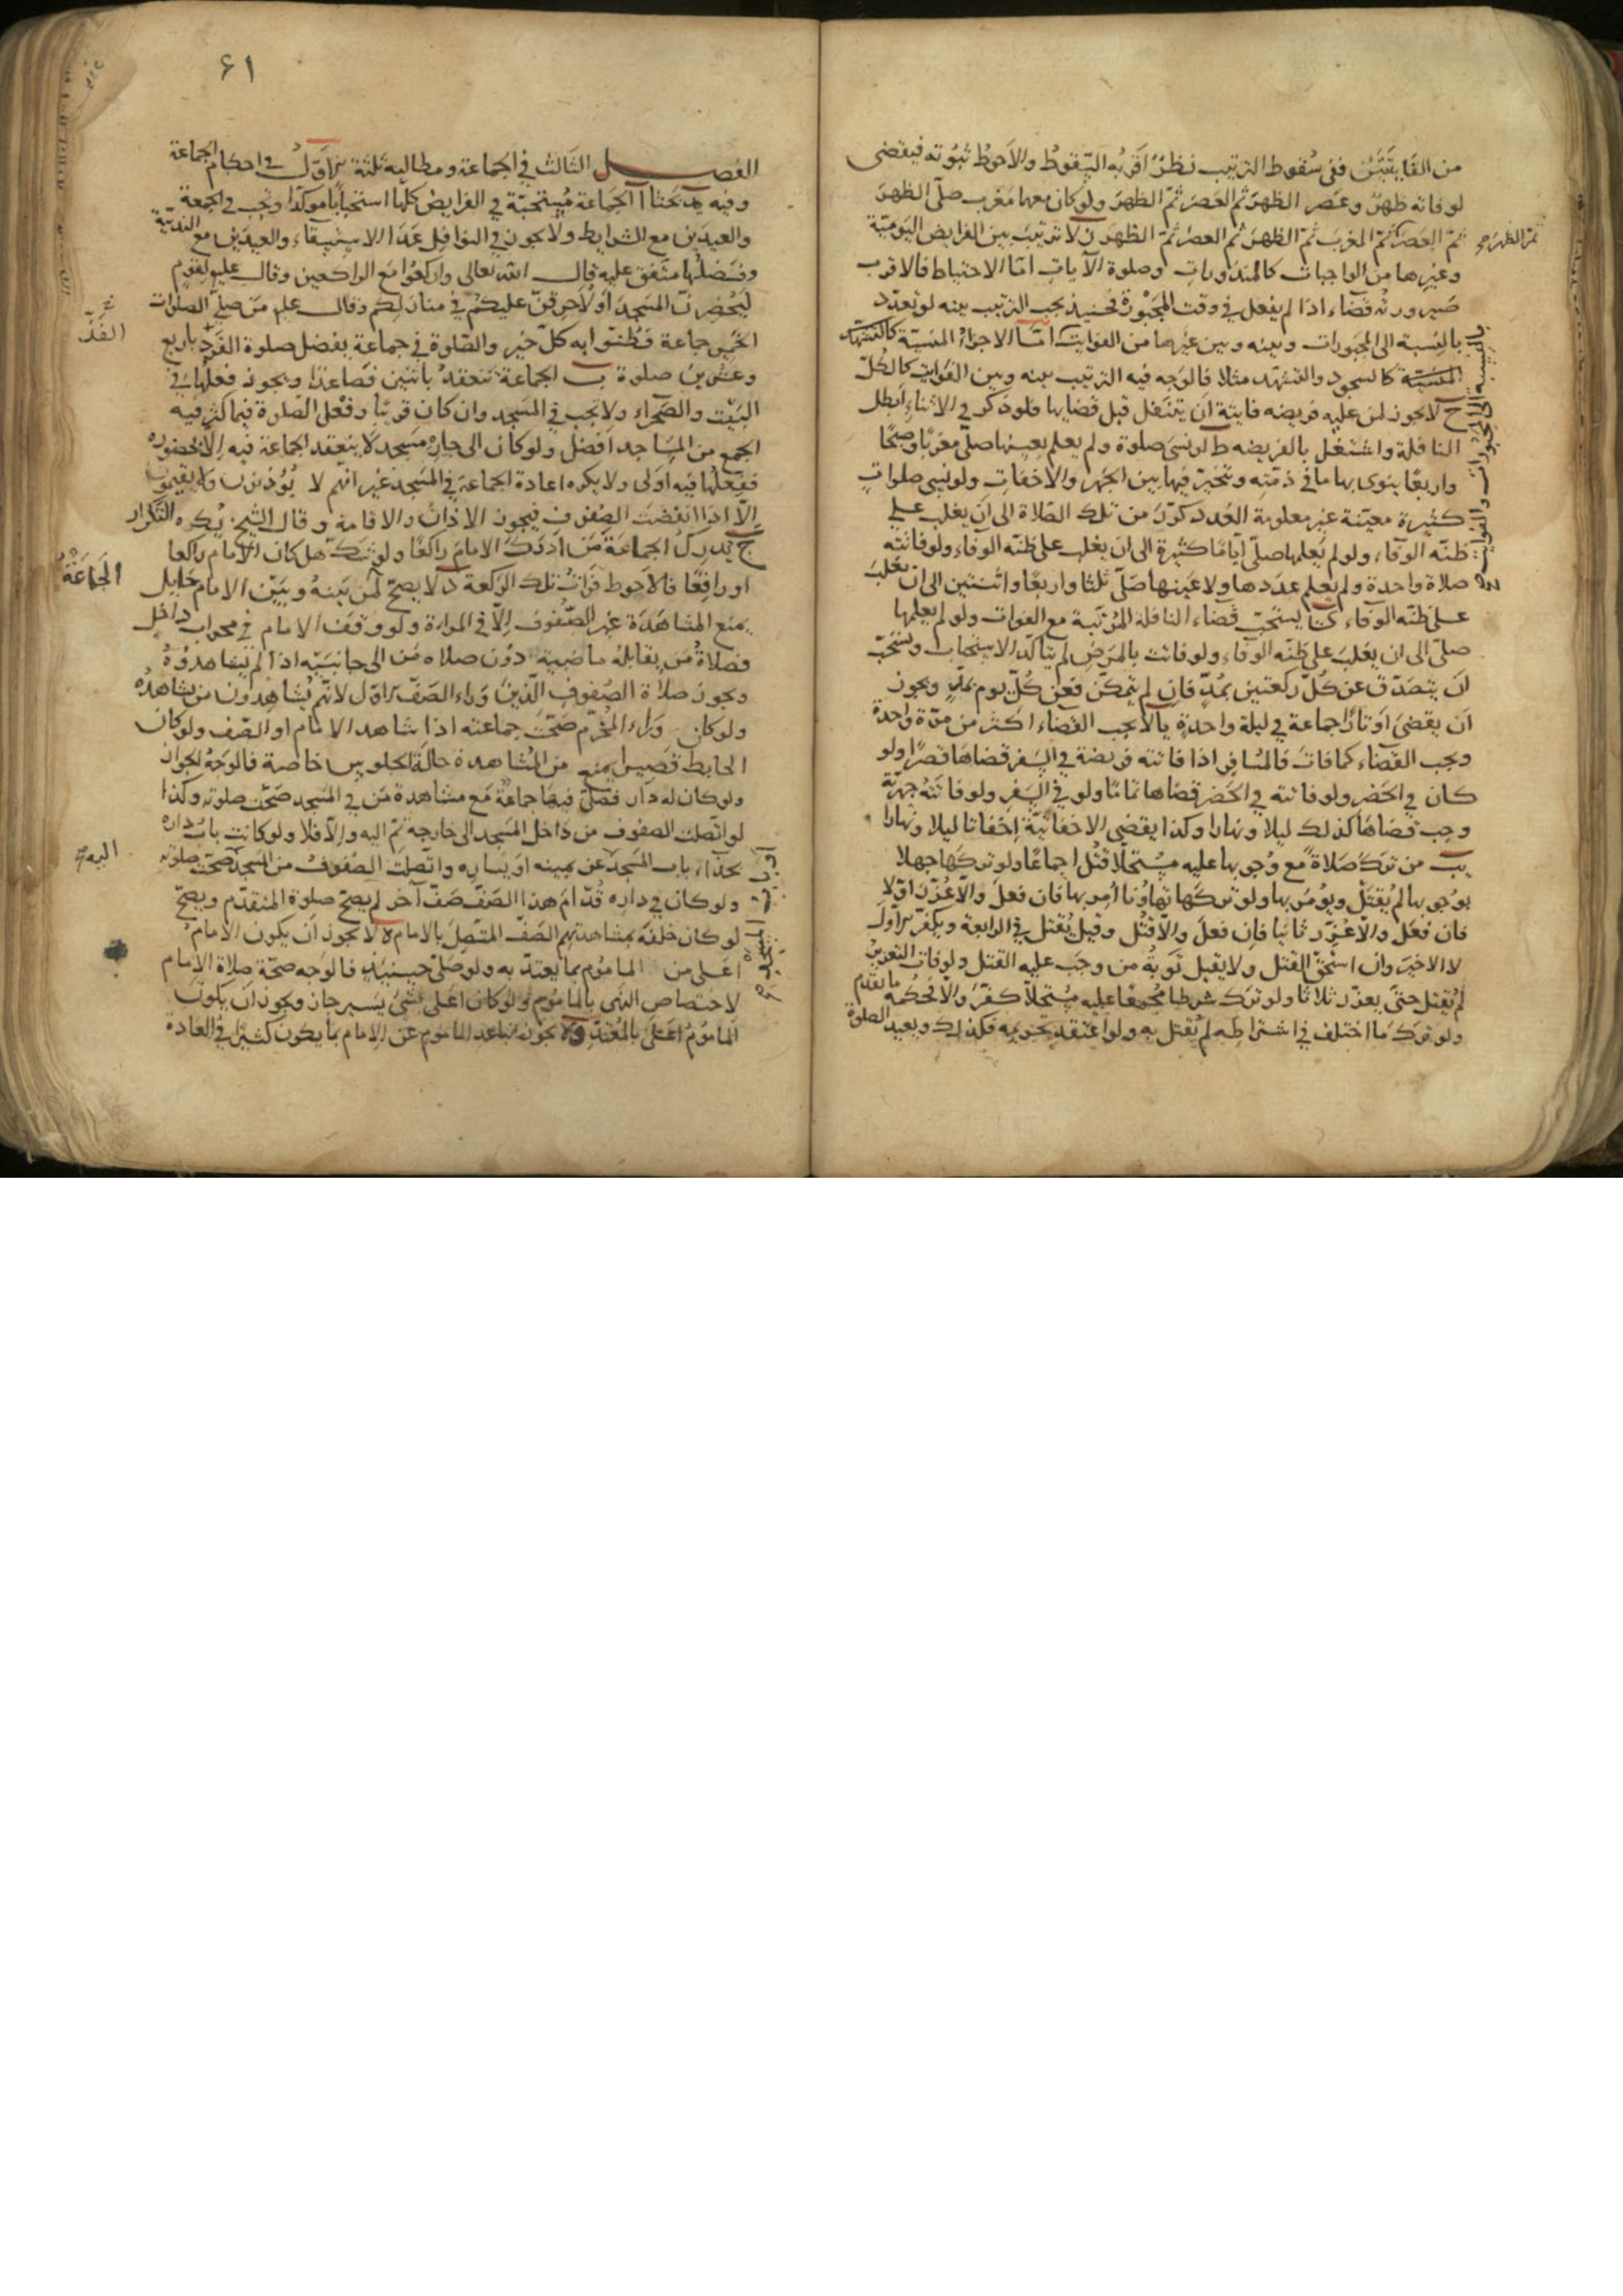 من الفايتتين ففي سقوط الترتيب نظر اقربه السقوط والاحوط ثبوته فيقضي
لو فاته ظهر وعصر الظهر ثم العصر ثم الظهر ولو كان معهما مغرب صلى الظهر
ثم العصر ثم المغرب ثم الظهر ثم العصر ثم الظهر ز لا ترتيب بين الفرايض اليومية
ثم الظهر صح
وغيرها من الواجبات كالمنذورات وصلوة الآيات اما الاحتياط فالاقرب
صيرورته قضاء اذا لم يفعل في وقت المجبورة فحينئذ يجب الترتيب بينه لو تعدد
بالنسبة الى المجبورات وبينه وبين غيرها من الفوايت اما الاجزاء المنسية كالتشهد
المنسية كالسجود والتشهد مثلا فالوجه فيه الترتيب بينه وبين الفوايت كالكل
بالنسبة الى المجبورات والفوايت صح
ح لا يجوز لمن عليه فريضه فايتة ان يتنفل قبل قضايها فلو ذكر في الاثناء ابطل
النافلة واشتغل بالفريضه ط لو نسي صلوة ولم يعلم بعينها صلى مغربا وصبحا
واربعا ينوي بها ما في ذمته ويتخير فيها بين الجهر والاخفات ولو نسي صلوات
كثيرة معينة غير معلومة العدد كرر من تلك الصلاة الى ان يغلب على
ظنه الوفاء ولو لم يعلمها صلى اياما كثيرة الى ان يغلب على ظنه الوفاء ولو فاتته
صلاة واحدة ولم يعلم عددها ولا عينها صلى ثلثا واربعا واثنتين الى ان يغلب
على ظنه الوفاء ى يستحب قضاء النافلة المرتبة مع الفوات ولو لم يعلمها
صلى الى ان يغلب على ظنه الوفاء ولو فاتت بالمرض لم يتاكد الاستحباب ويستحب
ان يتصدق عن كل ركعتين بمد فان لم يتمكن فعن كل يوم بمد ويجوز
ان يقضي اوتارا جماعة في ليلة واحدة يا لا يجب القضاء اكثر من مرة واحدة
ويجب القضاء كما فات فالمسافر اذا فاتته فريضة في السفر قضاها قصرا ولو
كان في الحضر ولو فاتته في الحضر قضاها تماما ولو في السفر ولو فاتته جهرية
وجب قضاها كذلك ليلا ونهارا وكذا يقضي الاخفاتية اخفاتا ليلا ونهارا
يب من ترك صلاة مع وجوبها عليه مستحلا قتل اجماعا ولو تركها جهلا
بوجوبها لم يقتل ويؤمر بها ولو تركها تهاونا امر بها فان فعل والا عزر اولا
فان فعل والا عزر ثانيا فان فعل والا قتل وقيل يقتل في الرابعة ويكفر الاول
لا الاخير وان استحق القتل ولا يقبل توبة من وجب عليه القتل ولو فات التعزير
لم يقتل حتى يعزر ثلاثا ولو ترك شرطا مجمعا عليه مستحلا كفر والا فحكمه ما تقدم
ولو ترك ما اختلف في اشتراطه لم يقتل به ولو اعتقد تحريمه فكذلك ويعيد الصلوة
٤١
الفصل الثالث في الجماعة ومطالبه ثلثة الاول في احكام الجماعة
وفيه يد بحثا ا الجماعة مستحبة في الفرايض كلها استحبابا موكدا وتجب في الجمعة
والعيدين مع الشرايط ولا يجوز في النوافل عدا الاستسقاء والعيدين مع الندبية
وفضلها متفق عليه قال الله تعالى واركعوا مع الراكعين وقال عليه لقوم
ليحضرن المسجد او لاحرقن عليكم في منازلكم وقال علم من صلى الصلوات
الخمس جماعة فظنوا به كل خير والصلوة في جماعة يفضل صلوة الفرد باربع
الفذ
وعشرين صلوة ب الجماعة تنعقد باثنين فصاعدا ويجوز فعلها في
البيت والصحراء ولا تجب في المسجد وان كان قريبا وفعل الصلوة فيما كثر فيه
الجمع من المساجد افضل ولو كان الى جاره مسجد لا ينعقد الجماعة فيه الا بحضوره
ففعلها فيه اولى ولا يكره اعادة الجماعة في المسجد غير انهم لا يؤذنون ولا يقيمون
الا اذا انفضت الصفوف فيجوز الاذان والاقامة وقال الشيخ يكره التكرار
ج يدرك الجماعة من ادرك الامام راكعا ولو شك هل كان الامام راكعا
الجماعة
او رافعا فالاحوط فوات تلك الركعة د لا يصح لمن بينه وبين الامام حايل
يمنع المشاهدة غير الصفوف الا في المراة ولو وقف الامام في محراب داخل
فصلاة من يقابله ماضية دون صلاه من الى جانبيه اذا لم يشاهدوه
ويجوز صلاة الصفوف الذين وراء الصف الاول لانهم يشاهدون من يشاهده
ولو كان وراء المخرم صحت جماعته اذا شاهد الامام او الصف ولو كان
الحايط قصيرا يمنع من المشاهدة حالة الجلوس خاصة فالوجه الجواز
ولو كان له دار فصلى فيها جماعة مع مشاهدة من في المسجد صحت صلوته وكذا
لو اتصلت الصفوف من داخل المسجد الى خارجه ثم اليه والا فلا ولو كانت باب داره
بحذاء باب المسجد عن يمينه او يساره واتصلت الصفوف من المسجد صحت صلوته
ولو كان في داره قدام هذا الصف صف آخر لم يصح صلوة المتقدم ويصح
لو كان خلفه بمشاهدتهم الصف المتصل بالامام ه لا يجوز ان يكون الامام
اعلى من الماموم بما يعتد به ولو صلى حينئذ فالوجه صحة صلاة الامام
لاختصاص النهى بالماموم ولو كان اعلى بشئ يسير جاز ويجوز ان يكون
الماموم اعلى بالمعتد و لا يجوز تباعد الماموم عن الامام بما يكون كثيرا في العادة